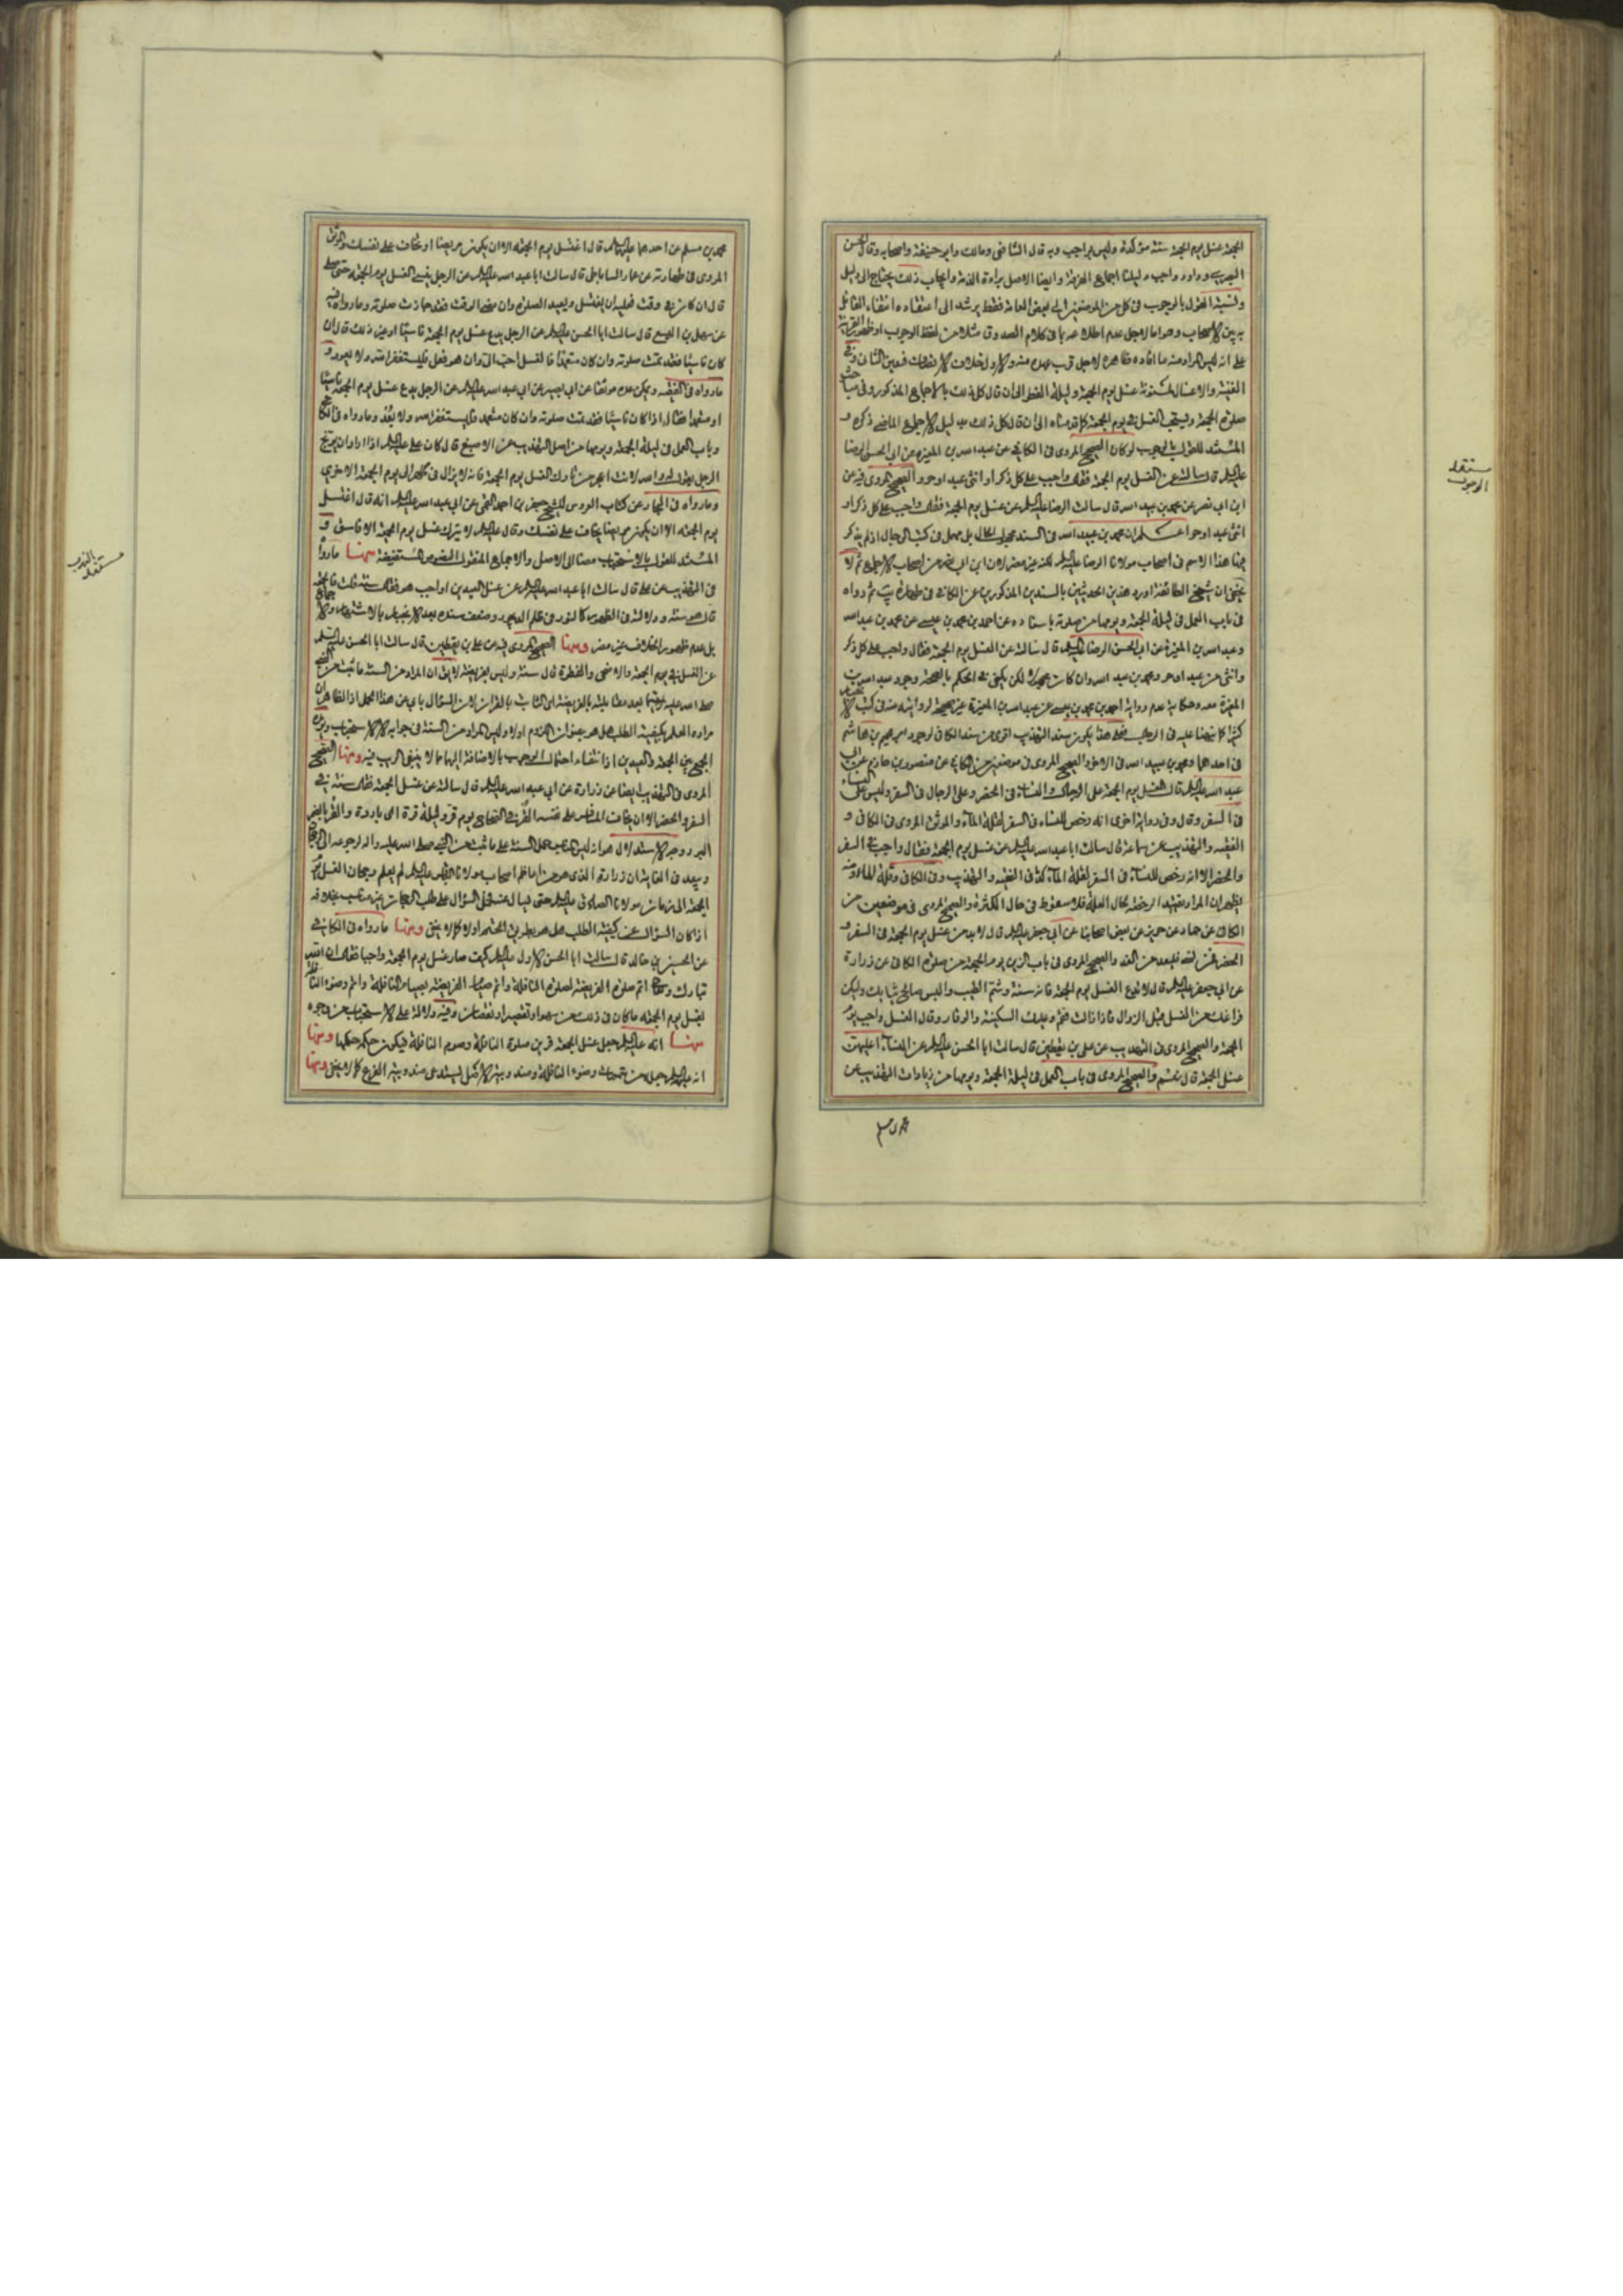 الجمعة غسل يوم الجمعة سنة مؤكدة وليس بواجب وبه قال الشافعي ومالك وابو حنيفة واصحابه وقال الحسن
البصري وداود واجب دليلنا اجماع الفرقة وايضا الاصل براءة الذمة وايجاب ذلك يحتاج الى دليل
ونسبة القول بالوجوب في كل من الموضعين الى بعض العامة فقط يرشد الى اعتقاده انتفاء القائل
به بين الاصحاب وهو اما لاجل عدم اطلاعه بما في كلام الصدوق مثلا من لفظ الوجوب او ظهور القرينة
على انه ليس المراد منه ما افاده ظاهره لاجل قرب عهده منه والاول خلاف الانصاف فتعين الثاني وفي
الغنية والاغسال المسنونة غسل يوم الجمعة وليلة الفطر الى ان قال كل ذلك بالاجماع المذكور وفي مباحث
صلوة الجمعة ويستحب الغسل في يوم الجمعة كما قدمناه الى ان قال كل ذلك بدليل الاجماع الماضي ذكره و
المستند للقول بالوجوب لو كان الصحيح المروي في الكافي عن عبد الله بن المغيرة عن ابي الحسن الرضا
عليه السلام قال سالته عن الغسل يوم الجمعة فقال واجب على كل ذكر او انثى عبد او حر والصحيح المروي فيه عن
ابن ابي نصر عن محمد بن عبيد الله قال سالت الرضا عليه السلام عن غسل يوم الجمعة فقال واجب على كل ذكر او
انثى عبد او حر اعلم ان محمد بن عبيد الله في السند مجهول الحال بل مهمل في كتب الرجال اذ لم يذكر
فيها هذا الاسم في اصحاب مولانا الرضا عليه السلام لكنه غير مضر لان ابن ابي نصر من اصحاب الاجماع ثم لا
يخفى ان شيخ الطائفة اورد هذين الحديثين بالسندين المذكورين عن الكافي في طهارة يب ثم رواه
في باب العمل في ليلة الجمعة ويومها من صلوته باسناده عن احمد بن محمد بن عيسى عن محمد بن عبد الله
وعبد الله بن المغيرة عن ابي الحسن الرضا عليه السلام قال سالته عن الغسل يوم الجمعة فقال واجب على كل ذكر
وانثى من عبد او حر ومحمد بن عبد الله وان كان مجهولا لكن يكفي في الحكم بالصحة وجود عبد الله بن
المغيرة معه وحكاية عدم رواية احمد بن محمد بن عيسى عن عبد الله بن المغيرة غير صحيحة لروايته عنه في كتب الاخبار
كثيرا كما نبهنا عليه في الرجال فعلى هذا يكون سند التهذيب اقوى من سند الكافي لوجود ابراهيم بن هاشم
في احدهما ومحمد بن عبيد الله في الاخر والصحيح المروي في موضعين من الكافي عن منصور بن حازم عن ابي
عبد الله عليه السلام قال الغسل يوم الجمعة على الرجال والنساء في الحضر وعلى الرجال في السفر وليس على النساء
في السفر وقال وفي رواية اخرى انه رخص للنساء في السفر لقلة الماء والموثق المروي في الكافي و
الفقيه والتهذيب عن سماعة قال سالت ابا عبد الله عليه السلام عن غسل يوم الجمعة فقال واجب في السفر
والحضر الا انه رخص للنساء في السفر لقلة الماء كذا في الفقيه والتهذيب وفي الكافي وقلة الماء ومنه
يظهر ان المراد تقييد الرخصة بحال القلة فلا سقوط في حال الكثرة والصحيح المروي في موضعين من
الكافي عن حماد عن حريز عن بعض اصحابنا عن ابي جعفر عليه السلام قال لا بد من غسل يوم الجمعة في السفر و
الحضر فمن نسي فليعد من الغد والصحيح المروي في باب التزين يوم الجمعة من صلوة الكافي عن زرارة
عن ابي جعفر عليه السلام قال لا تدع الغسل يوم الجمعة فانه سنة وشم الطيب والبس صالح ثيابك وليكن
فراغك من الغسل قبل الزوال فاذا زالت فقم وعليك السكينة والوقار وقال الغسل واجب يوم
الجمعة والصحيح المروي في التهذيب عن علي بن يقطين قال سالت ابا الحسن عليه السلام عن النساء اعليهن
غسل الجمعة قال نعم والصحيح المروي في باب العمل في ليلة الجمعة ويومها من زيادات التهذيب عن
محمد بن مسلم
مستند الوجوب
محمد بن مسلم عن احدهما عليهما السلام قال اغتسل يوم الجمعة الا ان يكون مريضا او تخاف على نفسك والموثق
المروي في طهارته عن عمار الساباطي قال سالت ابا عبد الله عليه السلام عن الرجل ينسى الغسل يوم الجمعة حتى صلى
قال ان كان في وقت فعليه ان يغتسل ويعيد الصلوة وان مضى الوقت فقد جازت صلوته وما رواه فيه
عن سهل بن اليسع قال سالت ابا الحسن عليه السلام عن الرجل يدع غسل يوم الجمعة ناسيا او غير ذلك قال ان
كان ناسيا فقد تمت صلوته وان كان متعمدا فالغسل احب الي وان هو فعل فليستغفر الله ولا يعود و
ما رواه في الفقيه ويمكن عده موثقا عن ابي بصير عن ابي عبد الله عليه السلام عن الرجل يدع غسل يوم الجمعة ناسيا
او متعمدا فقال اذا كان ناسيا فقد تمت صلوته وان كان متعمدا فليستغفر الله ولا يعد وما رواه في الكافي
وباب العمل في ليلة الجمعة ويومها من اصل التهذيب عن الاصبغ قال كان علي عليه السلام اذا اراد ان يوبخ
الرجل يقول له والله لانت اعجز من تارك الغسل يوم الجمعة فانه لا يزال في طهر الى يوم الجمعة الاخرى
وما رواه في البحار عن كتاب العروس للشيخ جعفر بن احمد القمي عن ابي عبد الله عليه السلام انه قال اغتسل
يوم الجمعة الا ان يكون مريضا يخاف على نفسك وقال عليه السلام لا يترك غسل يوم الجمعة الا فاسق و
المستند للقول بالاستحباب مضافا الى الاصل والاجماع المنقول النصوص المستفيضة منها ما رواه
في التهذيب عن علي قال سالت ابا عبد الله عليه السلام عن غسل العيدين اواجب هو فقال سنة قلت فالجمعة
قال هو سنة ودلالته في الظهور كالنور في ظلم الديجور وضعف سنده بعد الانجبار بالاشتهار والاجماع
بل عدم ظهور الخلاف غير مضر ومنها الصحيح المروي فيه عن علي بن يقطين قال سالت ابا الحسن عليه السلام
عن الغسل في يوم الجمعة والاضحى والفطرة قال سنة وليس بفريضة لا يق ان المراد من السنة ما ثبت من النبي
صلى الله عليه وآله فيما بعد مقابلته بالفريضة اي الثابت بالقران لان السؤال يابى عن هذا الحمل اذ الظاهر ان
مراده العلم بكيفية الطلب هل هو بعنوان اللزوم اولا وليس المراد من السنة في جوابه الا الاستحباب
الجمع بين الجمعة والعيدين اذ انتفاء احتمال الوجوب بالاضافة اليهما مما لا ينبغي الريب فيه ومنها الصحيح
المروي في التهذيب ايضا عن زرارة عن ابي عبد الله عليه السلام قال سالته عن غسل الجمعة فقال سنة في
السفر والحضر الا ان يخاف المسافر على نفسه القر في الصحاح يوم قر وليلة قرة اي باردة والقر بالضم
البرد وجه الاستدلال هو انه ليس المناسب حمل السنة على ما ثبت من النبي صلى الله عليه وآله لرجوعه الى
ويبعد في الغاية ان زرارة الذي هو من اعاظم اصحاب مولانا الباقر عليه السلام لم يعلم رجحان الغسل يوم
الجمعة الى زمان مولانا الصادق عليه السلام حتى يسال عنه فحمل السؤال على طلب الرجحان غير مناسب بخلافه
اذا كان السؤال عن كيفية الطلب هل هو بطريق الحتم اولا كما لا يخفى ومنها ما رواه في الكافي
عن الحسين بن خالد قال سالت ابا الحسن الاول عليه السلام كيف صار غسل يوم الجمعة واجبا فقال ان الله
تبارك وتعالى اتم صلوة الفريضة بصلوة النافلة واتم صيام الفريضة بصيام النافلة واتم وضوء النافلة
بغسل يوم الجمعة ما كان في ذلك من سهو او تقصير او نقصان وفيه دلالة على الاستحباب من وجوه
منها انه عليه السلام جعل غسل الجمعة قرين صلوة النافلة وصوم النافلة فيكون حكمه حكمها ومنها
انه عليه السلام جعله من متممات وضوء النافلة ومندوبية الاصل يستدعي مندوبية الفرع كما لا يخفى ومنها
مستند الندب